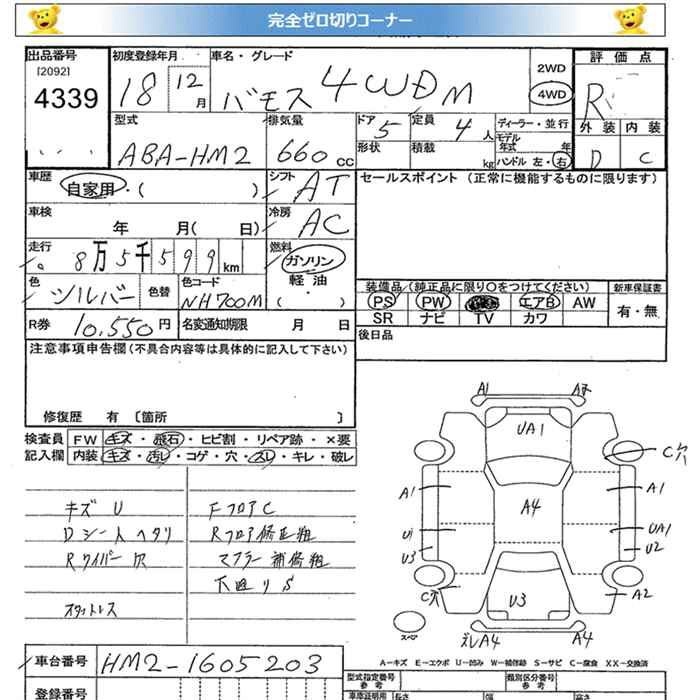 完全ゼロ切りコーナー
出品番号 初度登録年月 車名・グレード 評価点
[2092] 4339 18 12月 バモス 4WD M 2WD 4WD R
型式 排気量 ドア 定員 ディーラー・並行 外装 内装
ABA-HM2 660cc 5 4人 モデル年式 年 D C
形状 積載 kg ハンドル 左・右
車歴 自家用・( ) シフト AT セールスポイント (正常に機能するものに限ります)
車検 年 月( 日) 冷房 AC
走行 8万5千599km 燃料 ガソリン
軽油
( )
色 シルバー 色替 色コード NH700M 装備品(純正品に限り○をつけてください) 新車保証書
PS PW エアB AW 有・無
SR ナビ TV カワ
R券 10,550円 名変通知期限 月 日 後日品
注意事項申告欄(不具合内容等は具体的に記入して下さい)
修復歴 有 〔箇所 〕
検査員 FW キズ・飛石・ヒビ割・リペア跡・×要
記入欄 内装 キズ・汚レ・コゲ・穴・スレ・キレ・破レ
キズ U FフロアC
Dシートヘタリ Rフロア修正粗
Rワイパー穴 マフラー補修粗
下廻りS
スタットレス
A1 A2
UA1 C穴
A1 A4 A1
U1 UA1
U3 U2
C穴 U3 A2
スペア ズレA4 A4
A-キズ E-エクボ U-凹み W-補修跡 S-サビ C-腐食 XX-交換済
車台番号 HM2-1605203
型式指定番号 参考 類別区分番号 参考
登録番号 車庫証明用 長さ 幅 高さ